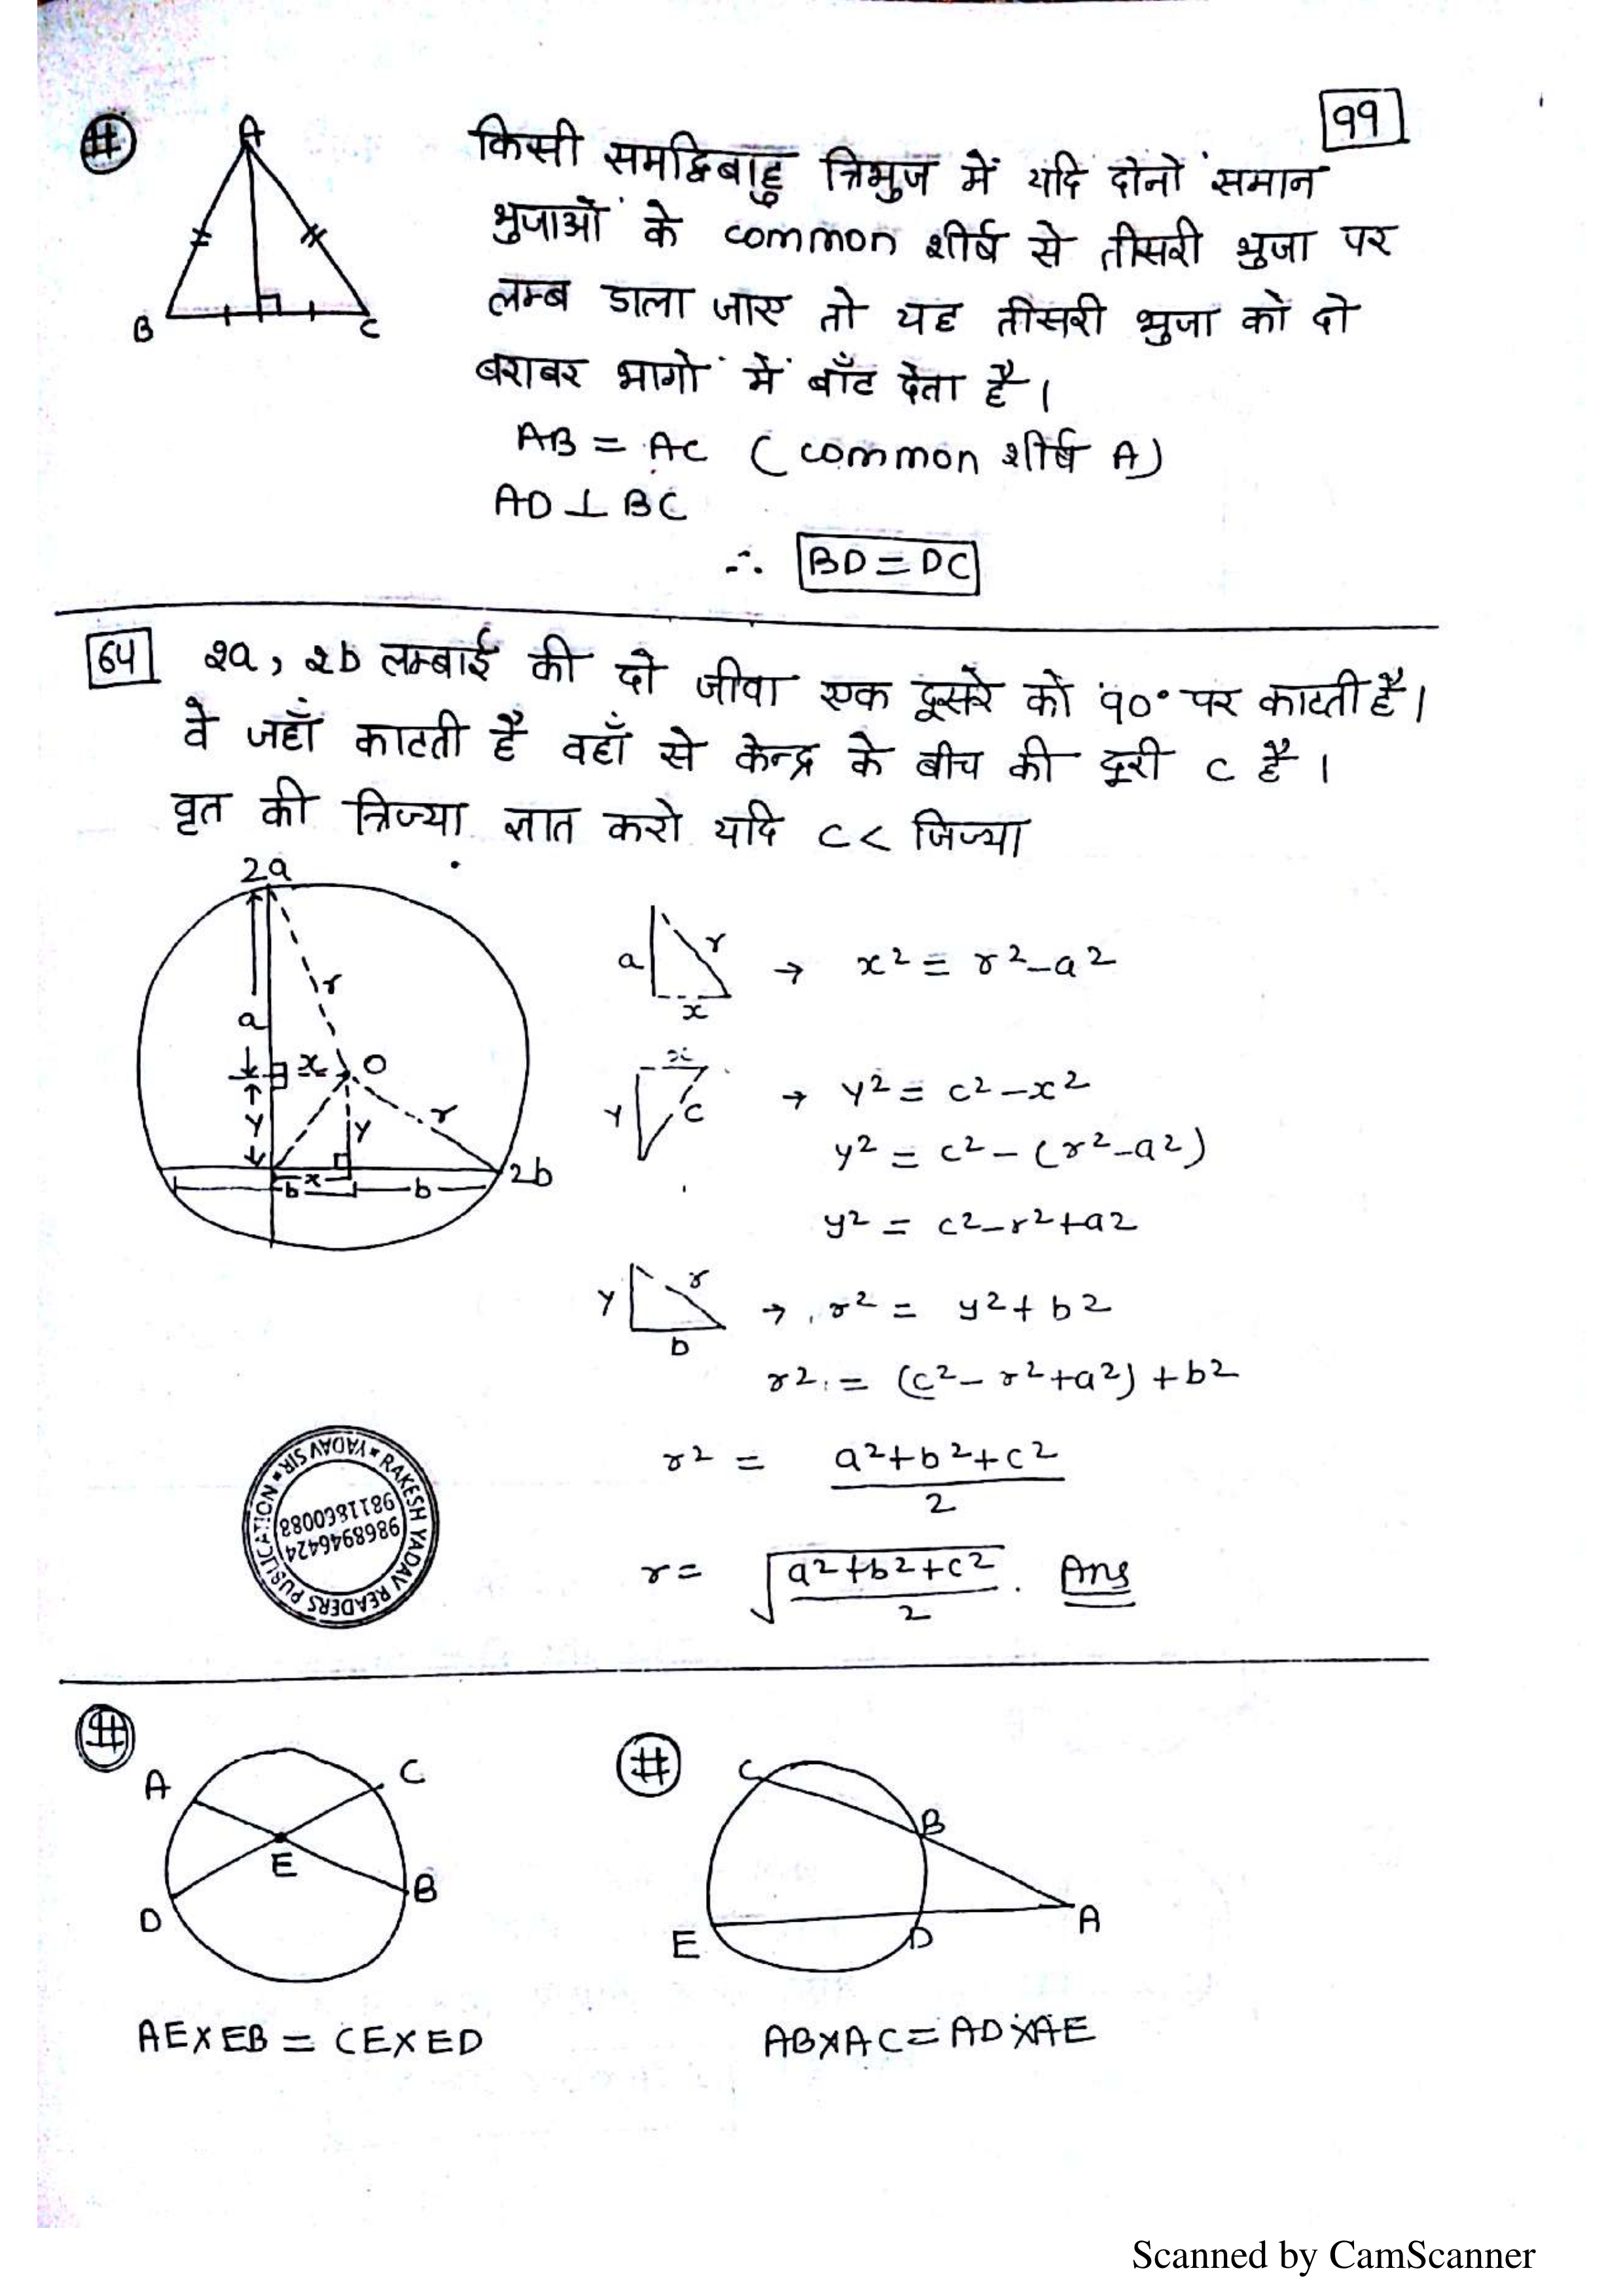 99
#
A
B
C
किसी समद्विबाहु त्रिभुज में यदि दोनों समान
भुजाओं के common शीर्ष से तीसरी भुजा पर
लम्ब डाला जाए तो यह तीसरी भुजा को दो
बराबर भागों में बाँट देता है।
AB = AC (common शीर्ष A)
AD ⊥ BC
∴ BD = DC
64 2a, 2b लम्बाई की दो जीवा एक दूसरे को 90° पर काटती है।
वे जहाँ काटती है वहाँ से केन्द्र के बीच की दूरी c है।
वृत की त्रिज्या ज्ञात करो यदि c < त्रिज्या
2a
r
a
x O
y y r
b x b 2b
a r x → x² = r² - a²
x y c → y² = c² - x²
y² = c² - (r² - a²)
y² = c² - r² + a²
y r b → r² = y² + b²
r² = (c² - r² + a²) + b²
r² = (a² + b² + c²)/2
r = √((a² + b² + c²)/2) . Ans
RAKESH YADAV READERS PUBLICATION * YADAV SIR *
9868946424
9811860088
#
A C
E
D B
AE × EB = CE × ED
#
C B
E D A
AB × AC = AD × AE
Scanned by CamScanner